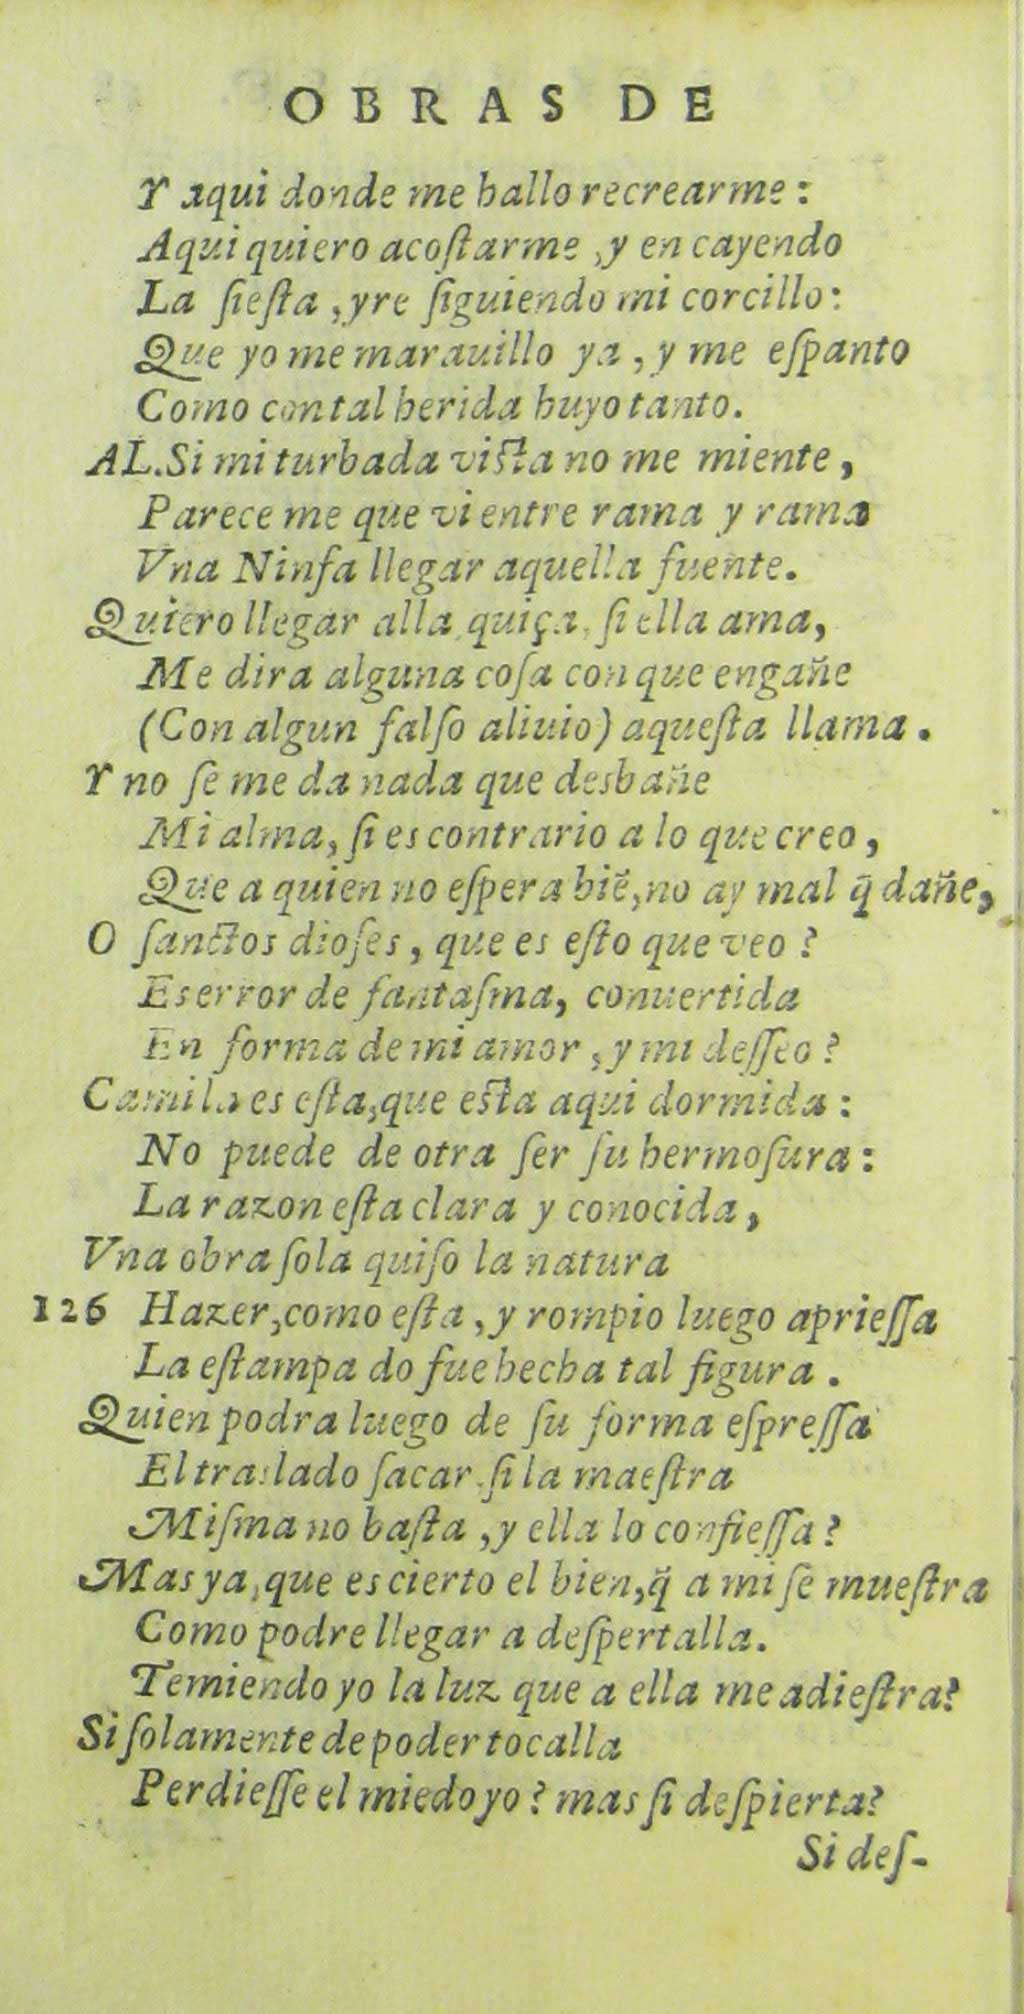 OBRAS DE
Y aqui donde me hallo recrearme:
Aqui quiero acoſtarme, y en cayendo
La ſieſta, yre ſiguiendo mi corcillo:
Que yo me marauillo ya, y me eſpanto
Como con tal herida huyo tanto.
AL. Si mi turbada viſta no me miente,
Parece me que vi entre rama y rama
Vna Ninfa llegar aquella fuente.
Quiero llegar alla, quiça, ſi ella ama,
Me dira alguna coſa con que engañe
(Con algun falſo aliuio) aqueſta llama.
Y no ſe me da nada que desbañe
Mi alma, ſi es contrario a lo que creo,
Que a quien no eſpera biẽ, no ay mal q̃ dañe,
O ſanctos dioſes, que es eſto que veo?
Es error de fantaſma, conuertida
En forma de mi amor, y mi deſſeo?
Camila es eſta, que eſta aqui dormida:
No puede de otra ſer ſu hermoſura:
La razon eſta clara y conocida,
Vna obra ſola quiſo la natura
126 Hazer, como eſta, y rompio luego aprieſſa
La eſtampa do fue hecha tal figura.
Quien podra luego de ſu forma eſpreſſa
El traslado ſacar, ſi la maeſtra
Miſma no baſta, y ella lo confieſſa?
Mas ya, que es cierto el bien, q̃ a mi ſe mueſtra
Como podre llegar a deſpertalla.
Temiendo yo la luz que a ella me adieſtra?
Si ſolamente de poder tocalla
Perdieſſe el miedo yo? mas ſi deſpierta?
Si deſ-